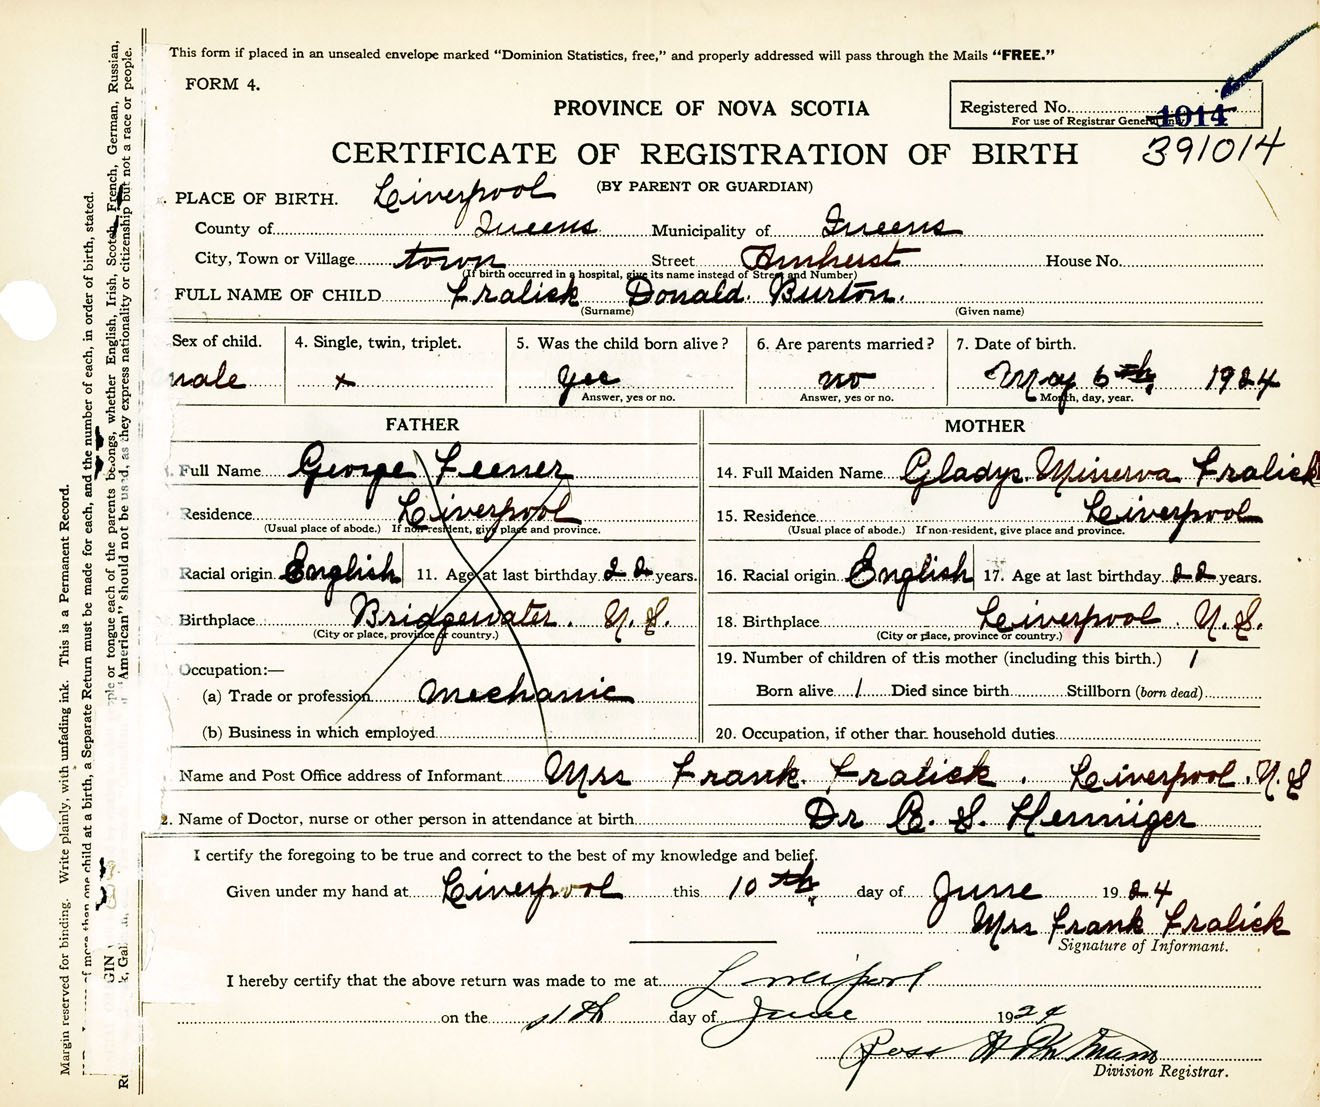 This form if placed in an unsealed envelope marked "Dominion Statistics, free," and properly addressed will pass through the Mails "FREE."
FORM 4.
PROVINCE OF NOVA SCOTIA
Registered No. 1014
For use of Registrar General only
CERTIFICATE OF REGISTRATION OF BIRTH
391014
(BY PARENT OR GUARDIAN)
PLACE OF BIRTH. Liverpool
County of Queens Municipality of Queens
City, Town or Village town Street Amherst House No.
(If birth occurred in a hospital, give its name instead of Street and Number)
FULL NAME OF CHILD Fralick Donald Burton.
(Surname) (Given name)
Sex of child. 4. Single, twin, triplet. 5. Was the child born alive? 6. Are parents married? 7. Date of birth.
male x yes no May 6th, 1924
Answer, yes or no. Answer, yes or no. Month, day, year.
FATHER MOTHER
Full Name George Feener 14. Full Maiden Name Gladys Minerva Fralick
Residence Liverpool 15. Residence Liverpool
(Usual place of abode.) If non-resident, give place and province. (Usual place of abode.) If non-resident, give place and province.
Racial origin English 11. Age at last birthday 22 years. 16. Racial origin English 17. Age at last birthday 22 years.
Birthplace Bridgewater. N.S. 18. Birthplace Liverpool. N.S.
(City or place, province or country.) (City or place, province or country.)
19. Number of children of this mother (including this birth.) 1
Occupation:—
(a) Trade or profession mechanic Born alive 1 Died since birth Stillborn (born dead)
(b) Business in which employed 20. Occupation, if other than household duties
Name and Post Office address of Informant Mrs Frank Fralick. Liverpool. N.S
2. Name of Doctor, nurse or other person in attendance at birth Dr S.
I certify the foregoing to be true and correct to the best of my knowledge and belief.
Given under my hand at Liverpool this 10th, day of June 1924
Mrs Frank Fralick
Signature of Informant.
I hereby certify that the above return was made to me at Liverpool
on the 11th day of June 1924
Ross
Division Registrar.
Margin reserved for binding. Write plainly, with unfading ink. This is a Permanent Record.
of more than one child at a birth, a Separate Return must be made for each, and the number of each, in order of birth, stated.
people or tongue each of the parents belongs, whether English, Irish, Scotch, French, German, Russian,
"American" should not be used, as they express nationality or citizenship but not a race or people.